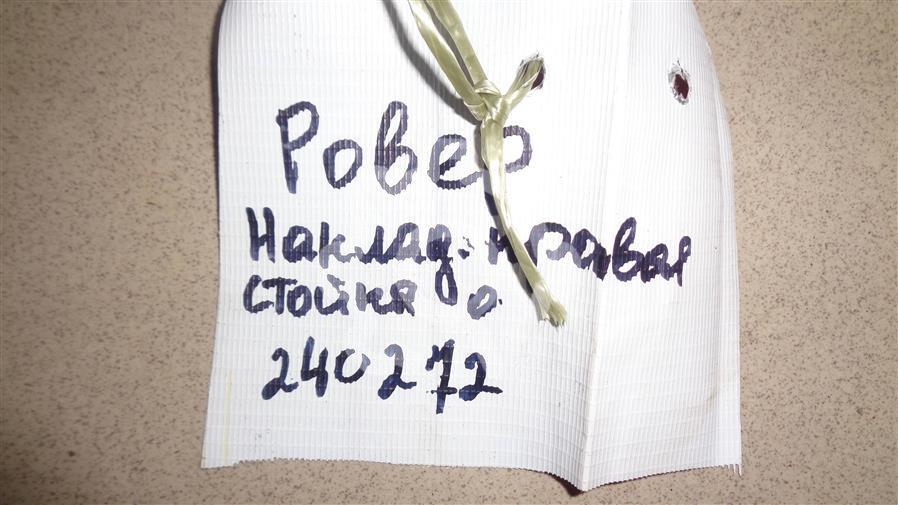 Ровер
Наклад. правая
стойка о
240272